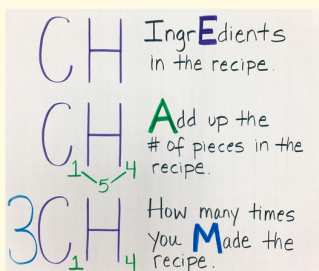 CH
IngrEdients
in the recipe.
CH
1 4
5
Add up the
# of pieces in the
recipe.
3CH
1 4
How many times
you Made the
recipe.